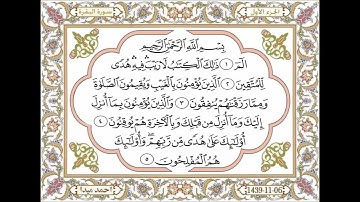 الجزء الأول
سورة البقرة
بِسْمِ اللَّهِ الرَّحْمَٰنِ الرَّحِيمِ
الم ١ ذَٰلِكَ الْكِتَابُ لَا رَيْبَ فِيهِ هُدًى
لِّلْمُتَّقِينَ ٢ الَّذِينَ يُؤْمِنُونَ بِالْغَيْبِ وَيُقِيمُونَ الصَّلَاةَ
وَمِمَّا رَزَقْنَاهُمْ يُنفِقُونَ ٣ وَالَّذِينَ يُؤْمِنُونَ بِمَا أُنزِلَ
إِلَيْكَ وَمَا أُنزِلَ مِن قَبْلِكَ وَبِالْآخِرَةِ هُمْ يُوقِنُونَ ٤
أُولَٰئِكَ عَلَىٰ هُدًى مِّن رَّبِّهِمْ وَأُولَٰئِكَ
هُمُ الْمُفْلِحُونَ ٥
احمد ميدا
1439-11-06